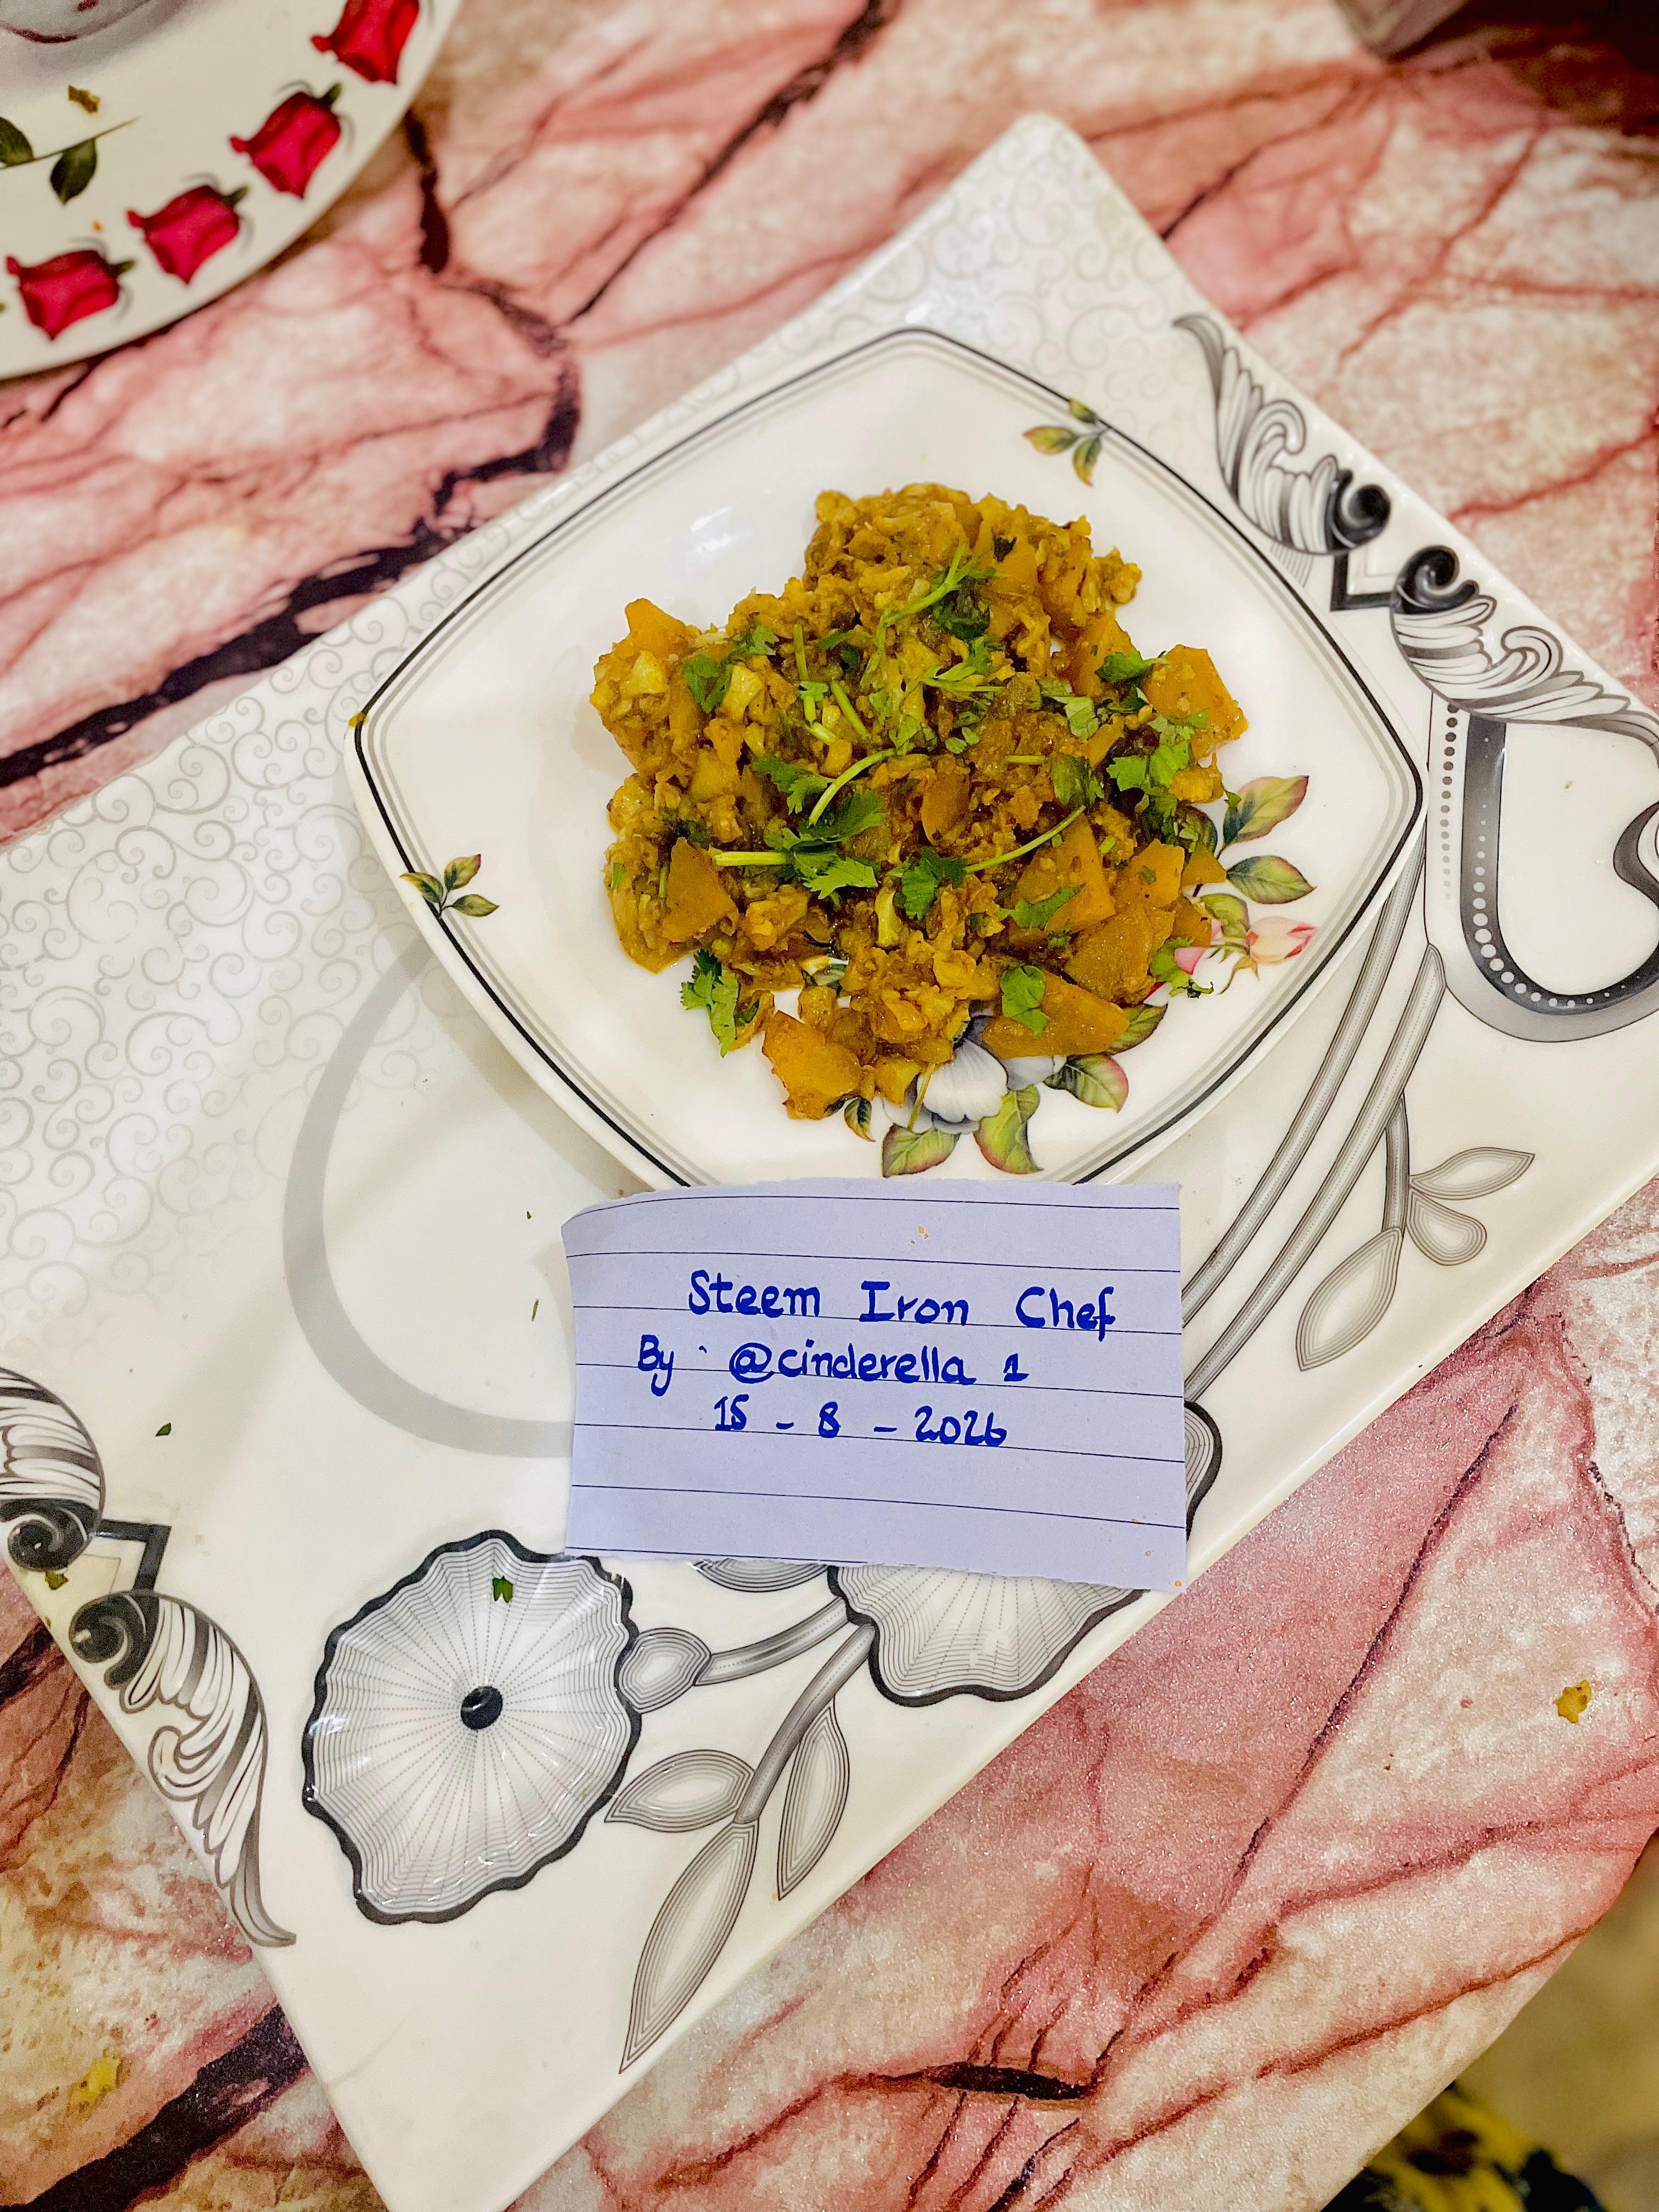 Steem Iron Chef
By : @cinderella 1
15 - 8 - 2026